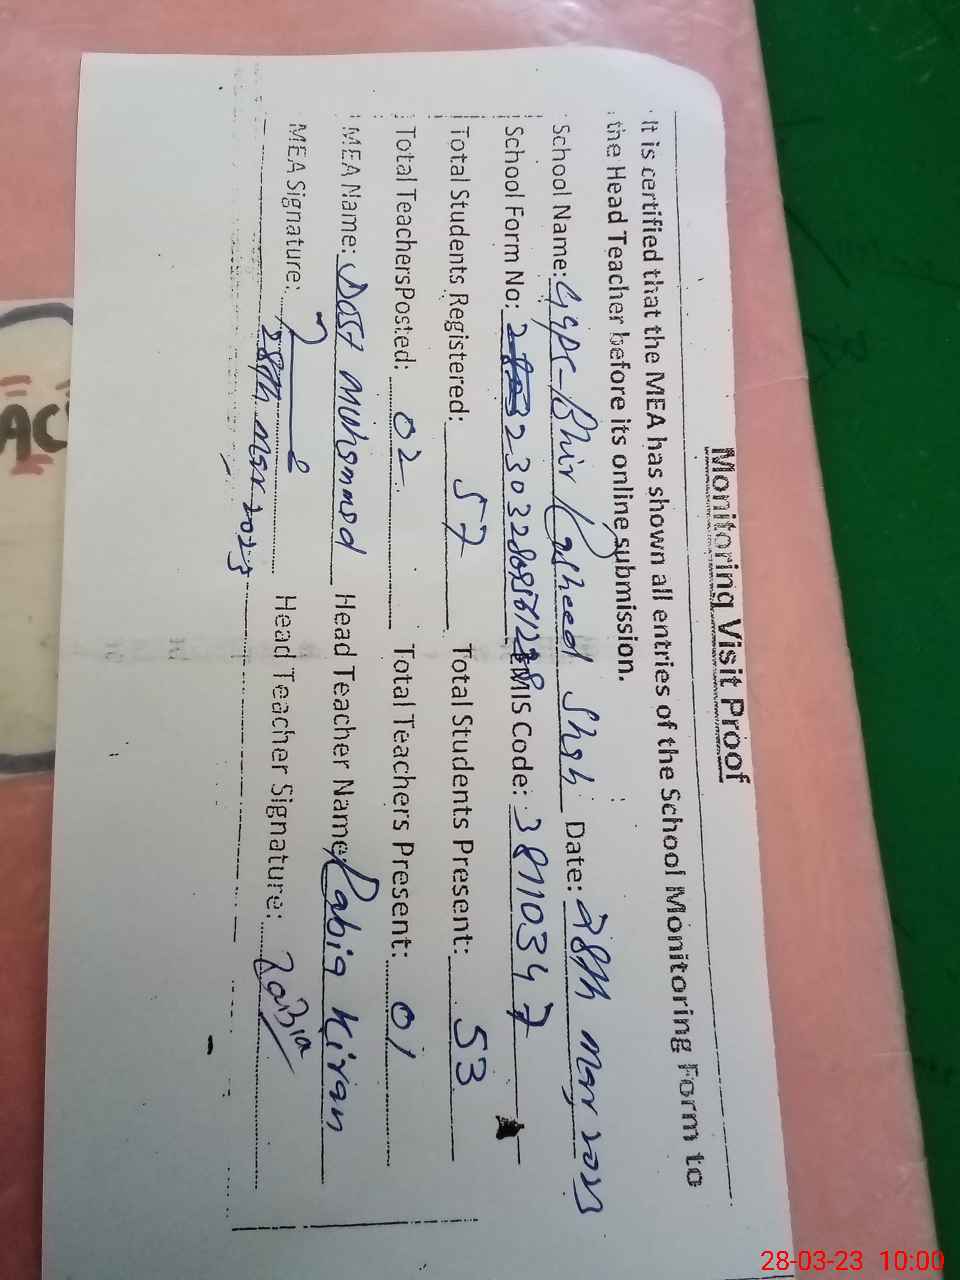 Monitoring Visit Proof
It is certified that the MEA has shown all entries of the School Monitoring Form to
the Head Teacher before its online submission.
School Name: GGPS-Bhir Rasheed Shah Date: 28th Mar 2023
School Form No: EMIS Code: 38110347
Total Students Registered: 57 Total Students Present: 53
Total TeachersPosted: 02 Total Teachers Present: 01
MEA Name: Dost Muhammad Head Teacher Name: Rabia Kiran
MEA Signature: Head Teacher Signature: Rabia
28th Mar 2023
AC
28-03-23 10:00